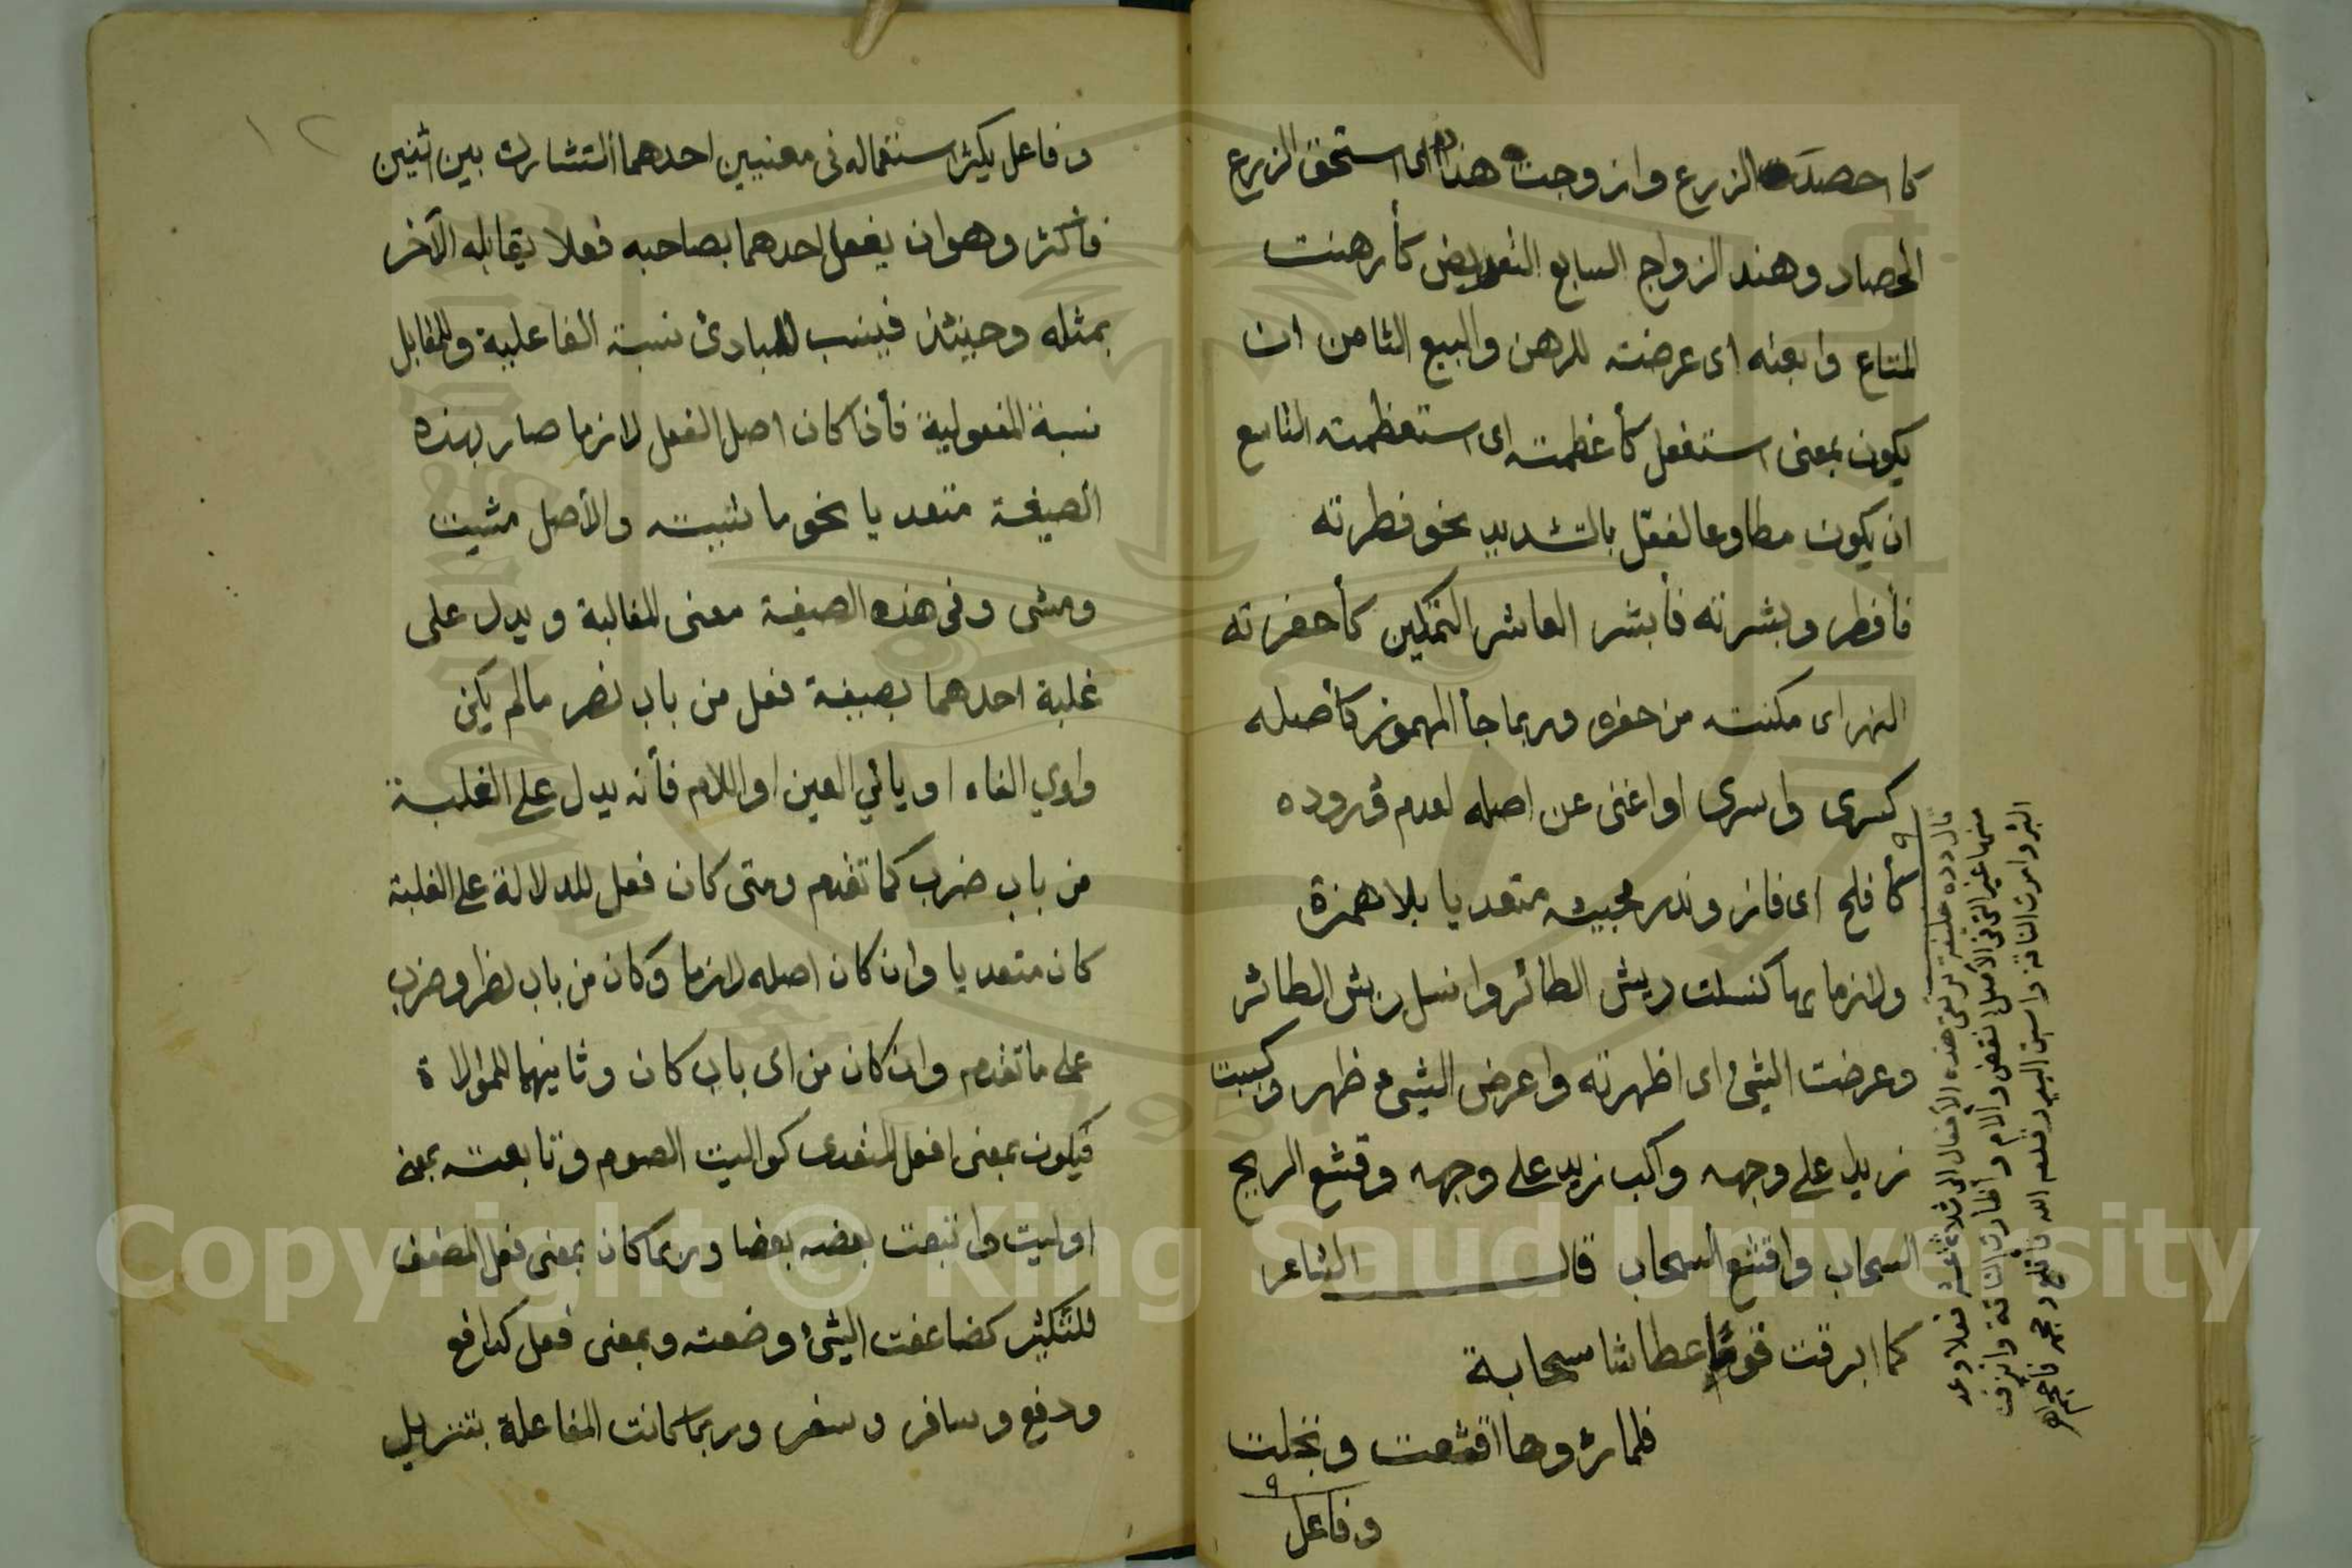 كا حصدت الزرع وازوجت هند اى استحق الزرع
الحصاد وهند الزواج السابع التعريض كأرهنت
المتاع وابعته اى عرضته للرهن والبيع الثامن ان
يكون بمعنى استفعل كأعظمته اى استعظمته التاسع
ان يكون مطاوعا لفعّل بالتشديد نحو فطرته
فأفطر وبشرته فأبشر العاشر التمكين كأحفرته
النهر اى مكنته من حفره وربما جأ المهموز كأصله
كسرى واسرى او اغنى عن اصله لعدم وروده
كأفلح اى فاز وندر مجيئه متعديا بلا همزة
ولازما بها كنسلت ريش الطائر وانسل ريش الطائر
وعرضت الشئ اى اظهرته واعرض الشئ ظهر وكببت
زيد على وجهه واكب زيد على وجهه وقشع الريح
السحاب واقشع السحاب قال الشاعر
كما ابرقت قوما عطاشا سحابة
فلما رؤوها اقشعت وتجلت
وفاعل
البئر وامرت الناقة واسبق البعير وقلعه الله فأقلع وحجمه فأحجم اهـ
١٢
وفاعل يكثر استعماله فى معنيين احدهما التشارك بين اثنين
فأكثر وهو ان يفعل احدهما بصاحبه فعلا يقابله الآخر
بمثله وحينئذ فينسب للبادئ نسبة الفاعلية وللمقابل
نسبة المفعولية فأذا كان اصل الفعل لازما صار بهذه
الصيغة متعديا نحو ماشيته والأصل مشيت
ومشى وفى هذه الصيغة معنى المغالبة ويدل على
غلبة احدهما بصيغة فعل من باب نصر مالم يكن
واوي الفاء او يائي العين او اللام فأنه يدل على الغلبة
من باب ضرب كما تقدم ومتى كان فعل للدلالة على الغلبة
كان متعديا وان كان اصله لازما وكان من باب نصر وضرب
على ما تقدم وان كان من اى باب كان وثانيهما للموالاة
فيكون بمعنى افعل المتعدى كواليت الصوم وتابعته بمعنى
اوليت واتبعت بعضه بعضا وربما كان بمعنى فعل المضعف
للتكثير كضاعفت الشئ وضعته وبمعنى فعل كدافع
ودفع وسافر وسفر وربما كانت المفاعلة بتنزيل
Copyright © King Saud University